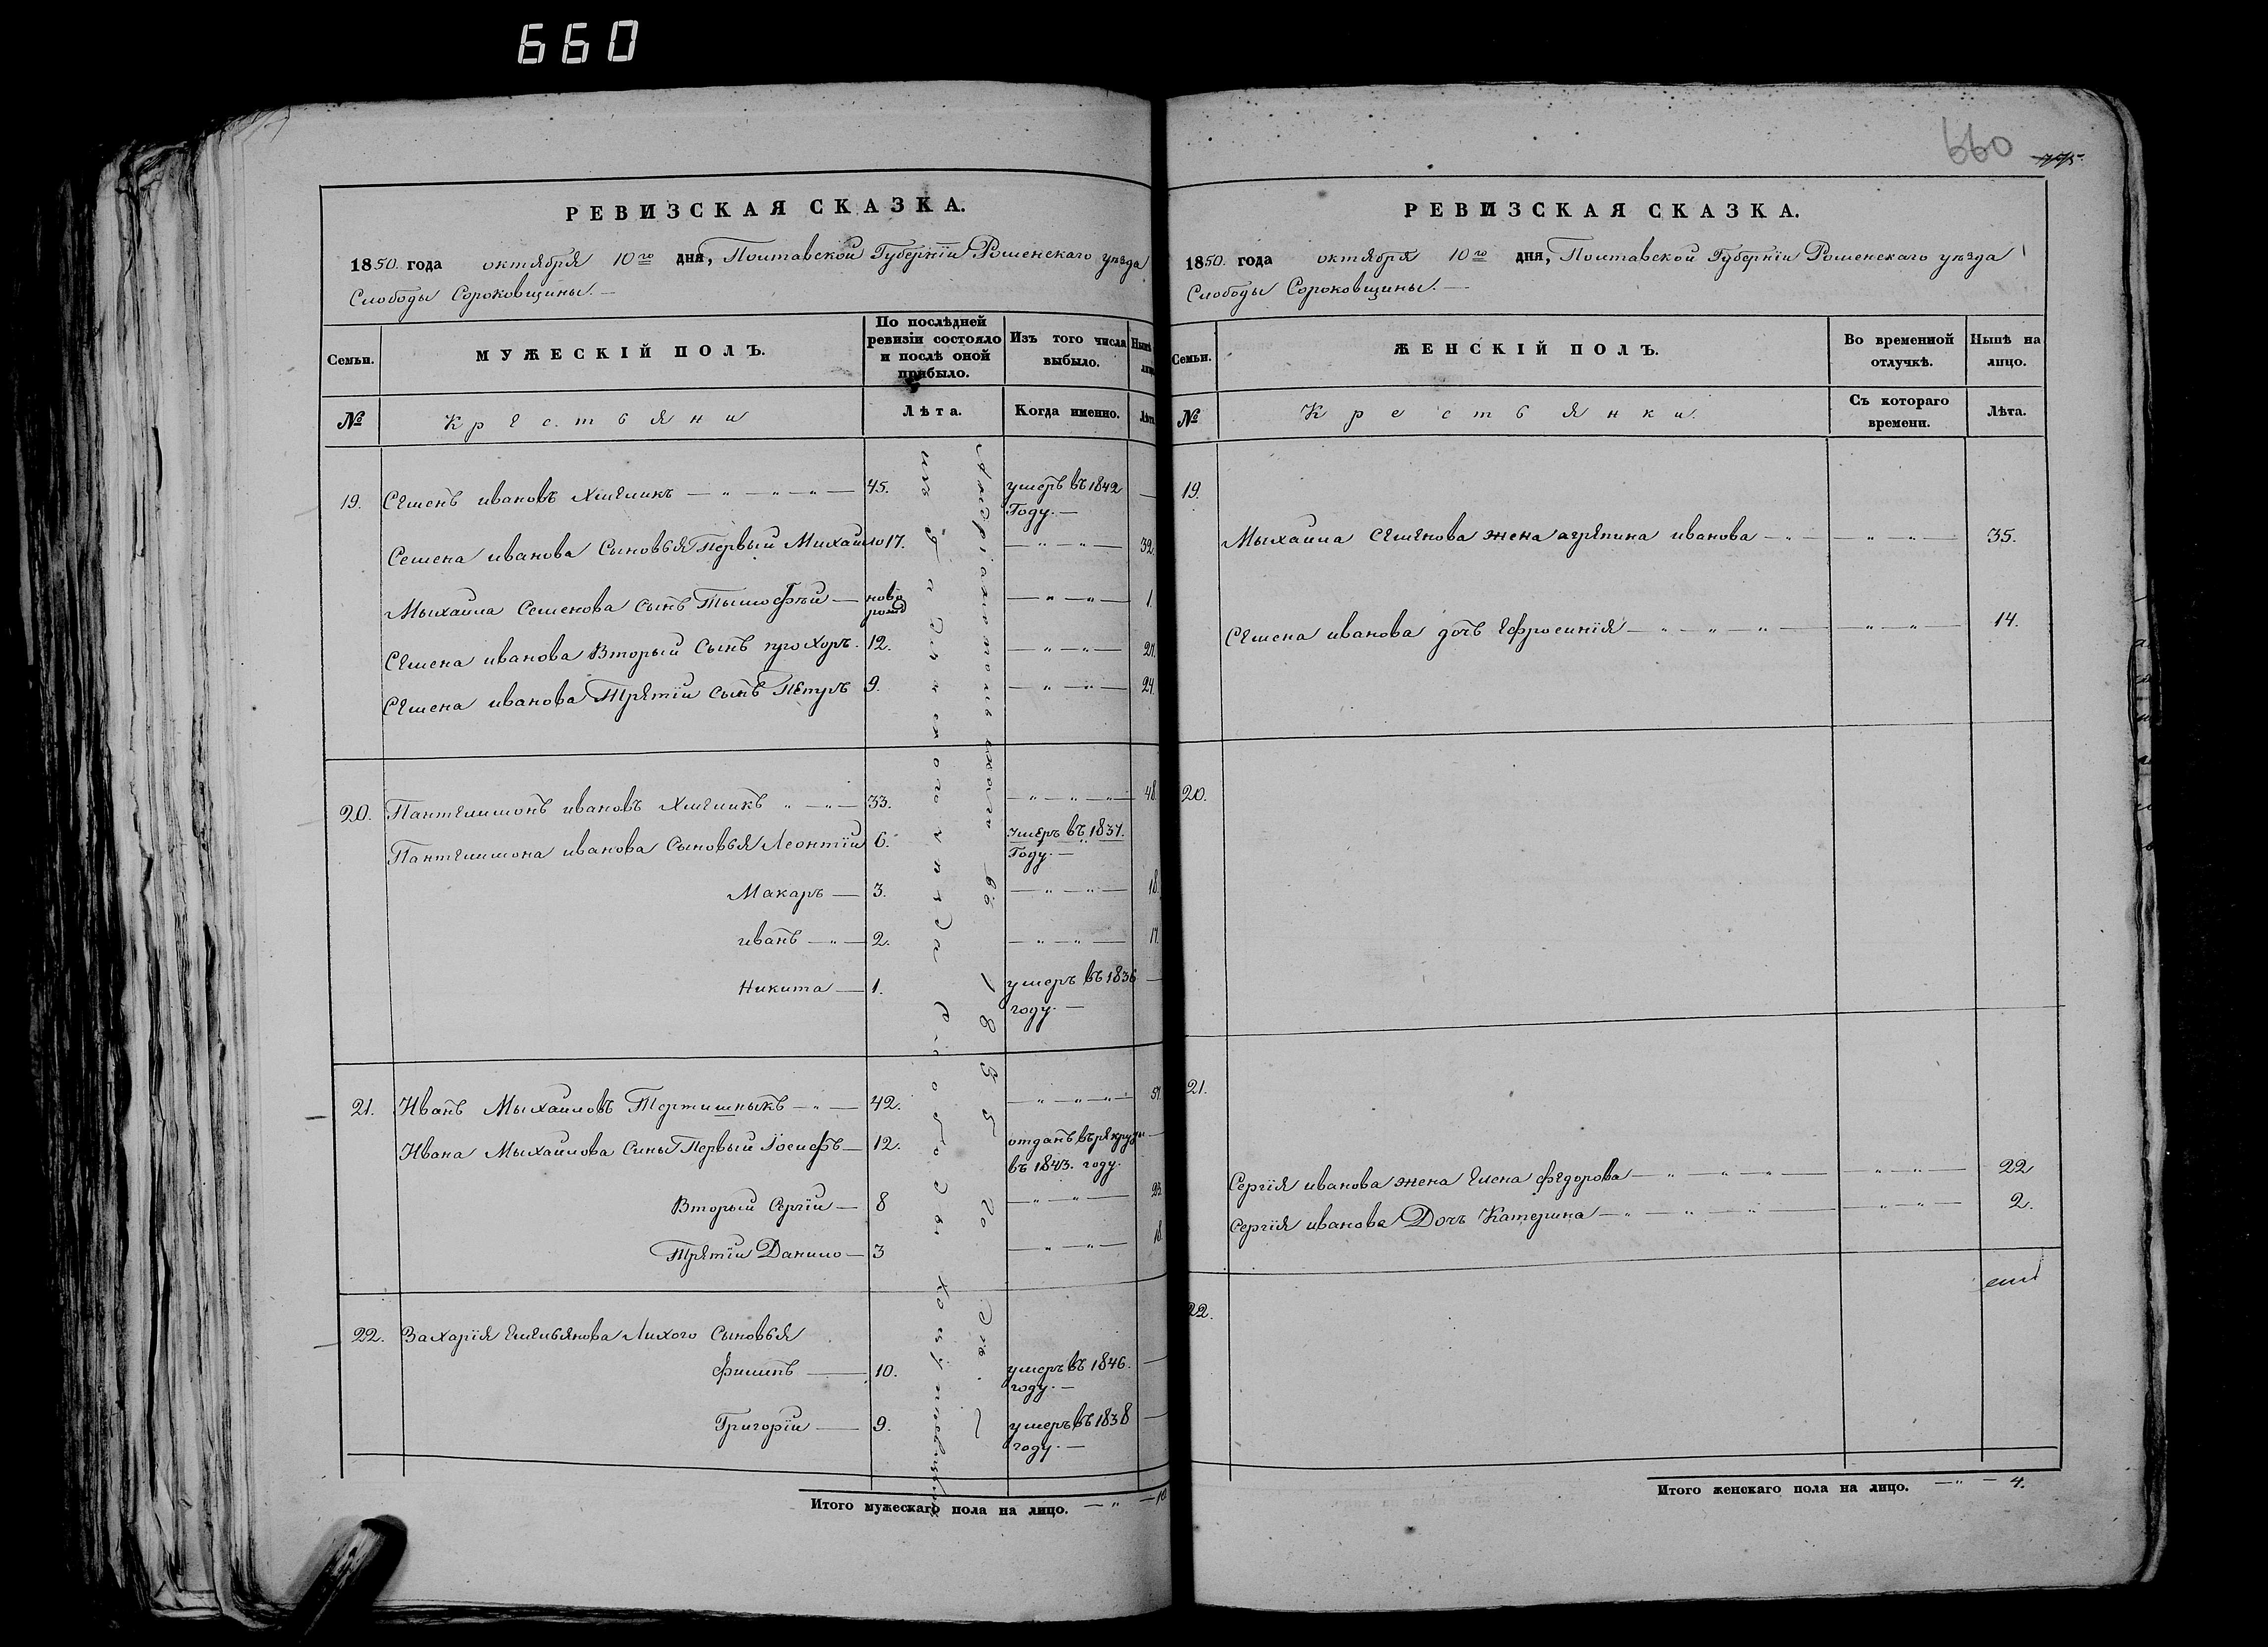 660
РЕВИЗСКАЯ СКАЗКА.
1850. года октября 10го дня, Полтавской Губерніи Роменскаго уѣзда
Слободы Сороковщины. —
Семьи.
МУЖЕСКІЙ ПОЛЪ.
По послѣдней ревизіи состояло и послѣ оной прибыло.
Изъ того числа выбыло.
№
Крестьяни
Лѣта.
Когда именно.
19. Семенъ ивановъ Хмеликъ — „ — „ — „ — 45. умеръ въ 1842 —
Году. —
Семена иванова Сыновья Первый Михайло 17. — „ — „ — 32.
Мыхаила Семенова сынъ Тымофѣй — ново рожд — „ — „ — 1.
Семена иванова Вторый Сынъ прохоръ. 12. — „ — „ — 27.
Семена иванова Третіи сынъ Петръ 9. — „ — „ — 24.
20. Пантелимонъ ивановъ Хмеликъ „ — „ — 33. — „ — „ — „ — 48.
Пантелимона иванова Сыновья Леонтіи 6. умеръ въ 1837.
Году. —
Макаръ — 3. — „ — „ — 18.
иванъ — „ — 2. — „ — „ — 17.
Никита — 1. умеръ въ 1836 —
году. —
21. Иванъ Мыхаиловъ Тертишныкъ — „ — 42. — „ — „ — „ — 57.
Ивана Мыхаилова Сины Первый Іосифъ — 12. отданъ въ рекруты —
въ 1843. году.
Вторый Сергіи — 8 — „ — „ — 23.
Третіи Данило — 3 — „ — „ — 18.
22. Захарія Емельянова Лихого Сыновья
Филипъ — 10. умеръ въ 1846. —
году. —
Григоріи — 9. умеръ въ 1838 —
году. —
Итого мужескаго пола на лицо. — „ — 10.
660
775.
РЕВИЗСКАЯ СКАЗКА.
1850. года октября 10го дня, Полтавской Губерніи Роменскаго уѣзда
Слободы Сороковщины. —
Семьи.
ЖЕНСКІЙ ПОЛЪ.
Во временной отлучкѣ.
Нынѣ на лицо.
№
Крестьянки.
Съ котораго времени.
Лѣта.
19.
Мыхаила Семенова жена агрепина иванова — „ — — „ — „ — 35.
Семена иванова дочь Ефросинія — „ — „ — „ — — „ — „ — 14.
20.
21.
Сергія иванова жена Елена федорова — „ — „ — „ — — „ — „ — 22
Сергія иванова Дочь Катерина — „ — „ — „ — „ — „ — 2.
22.
Итого женскаго пола на лицо. — „ — 4.